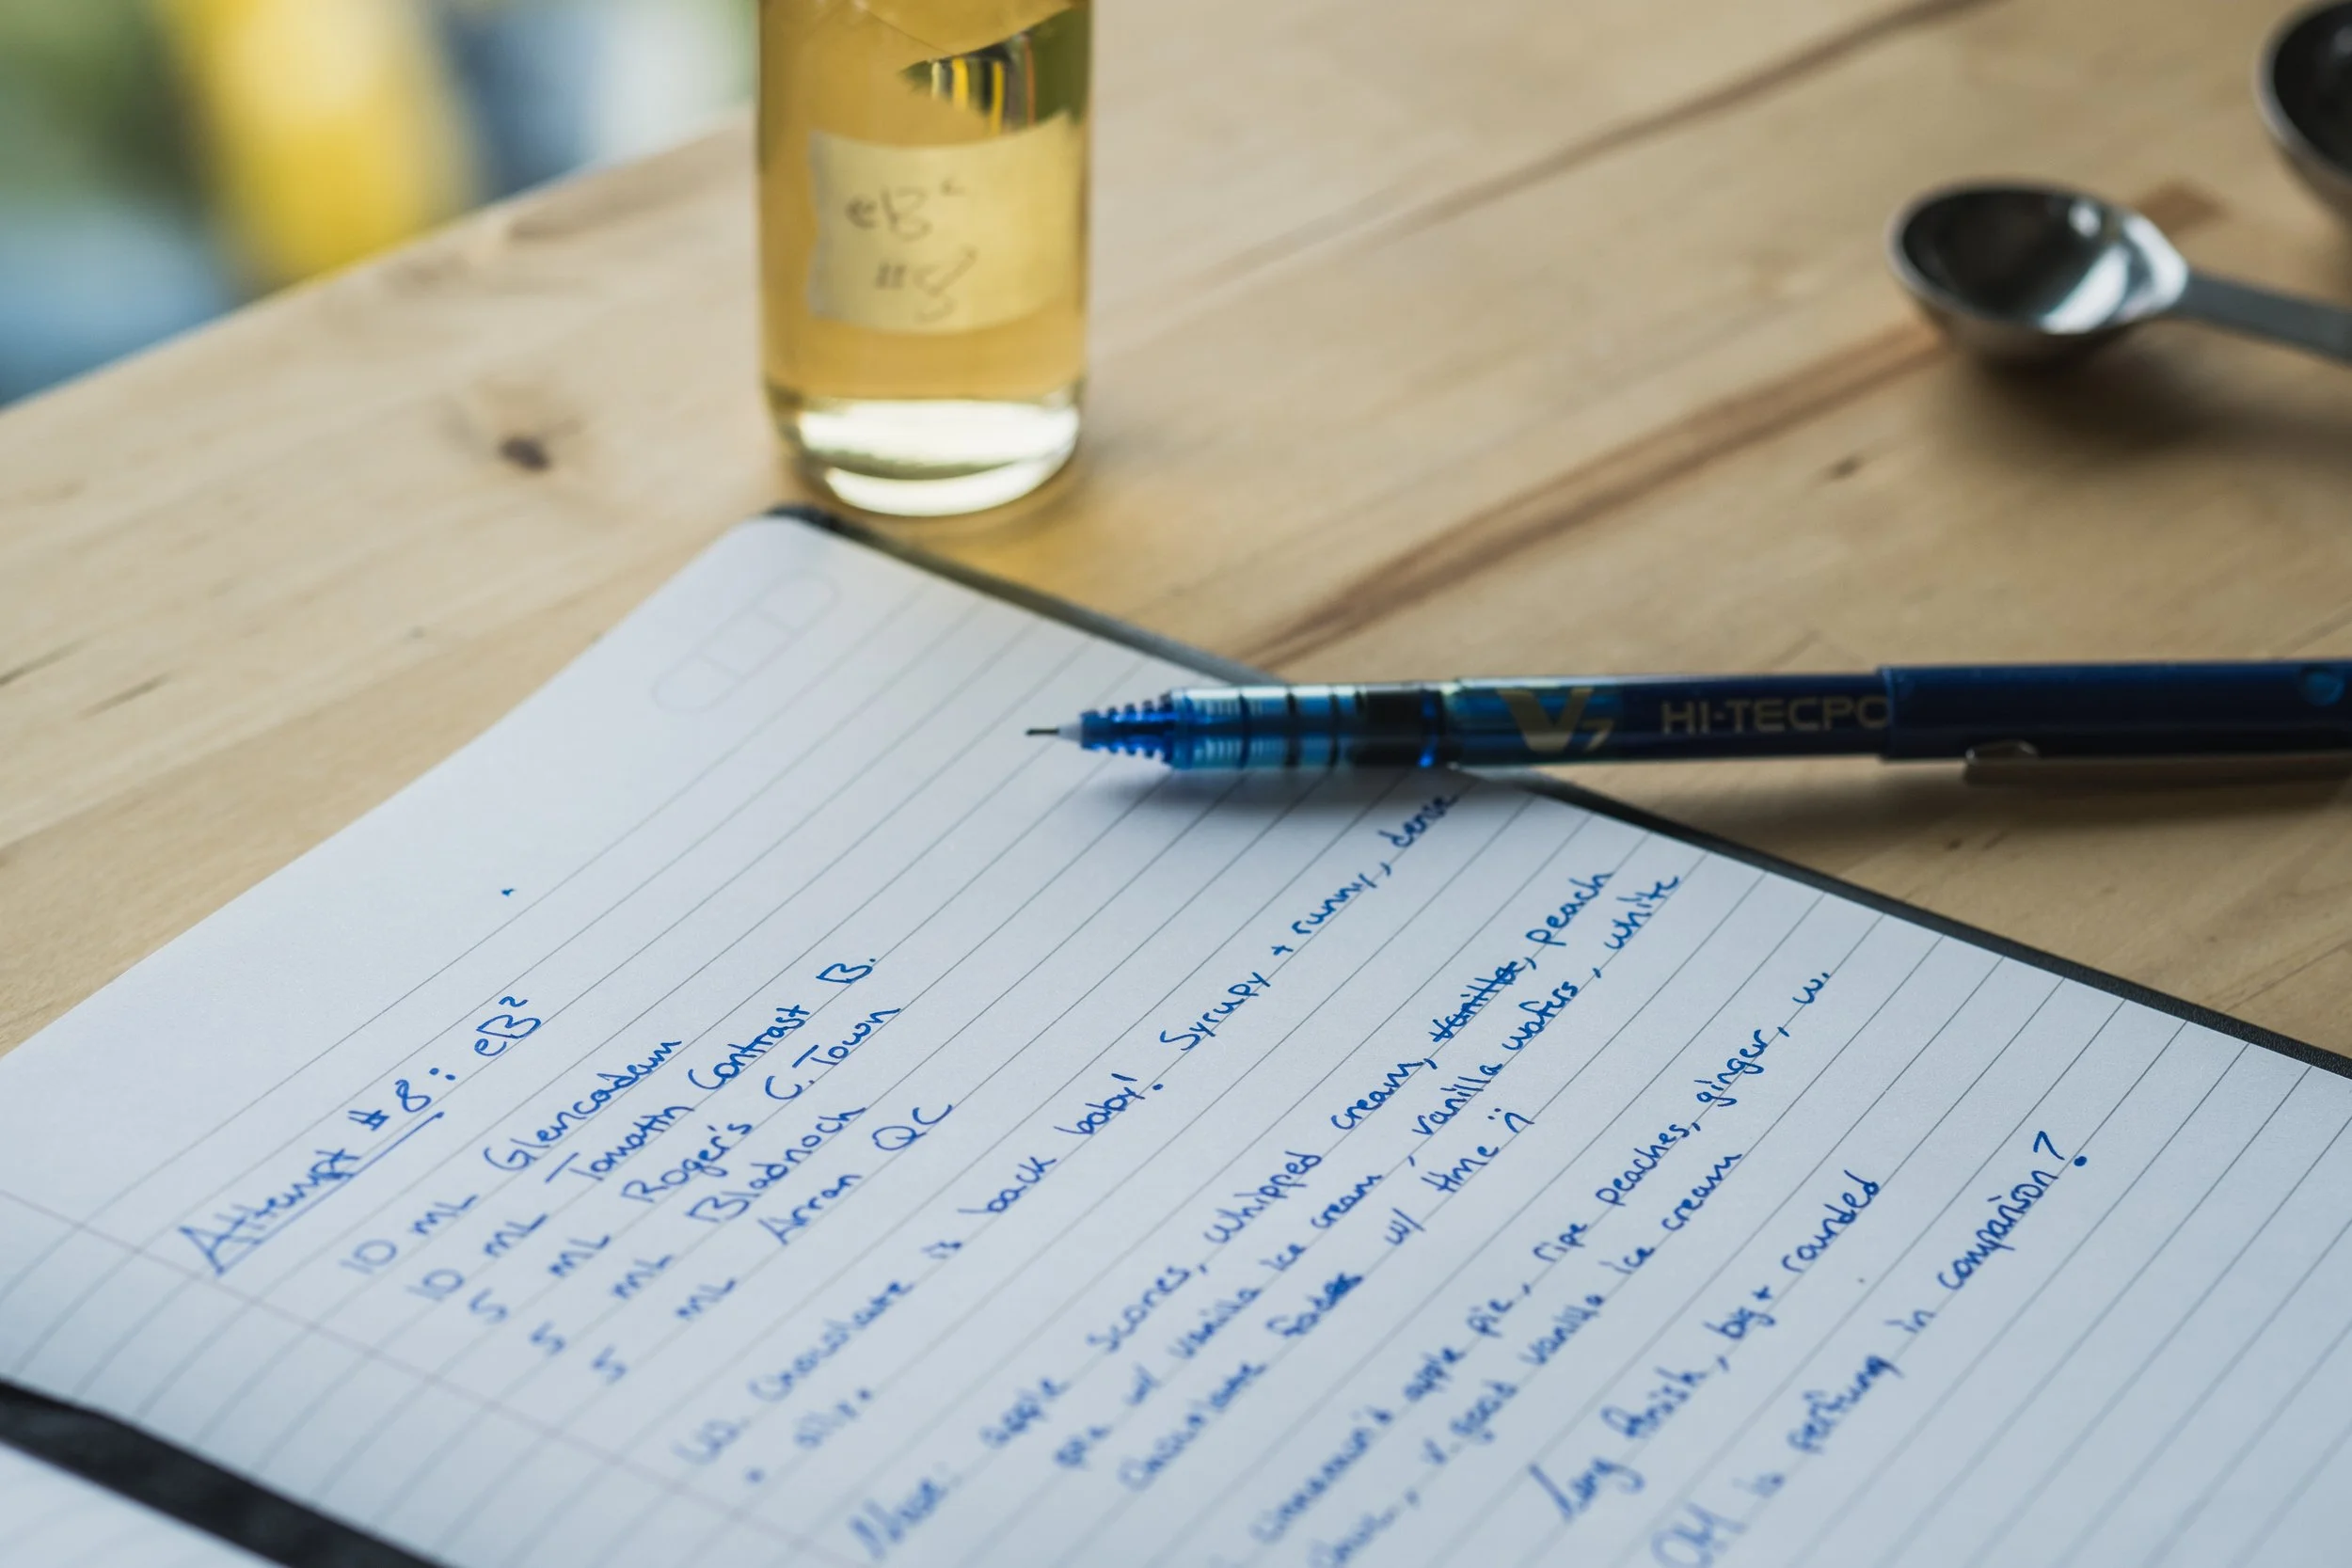 eB²
#8
V7 HI-TECPO
Attempt #8: eB²
10 mL Glencadam
10 mL Tomatin Contrast B.
5 mL Roger's C. Town
5 mL Bladnoch
5 mL Arran QC
W. chocolate is back baby! Syrupy + runny, dense
+ oily.
Nose: apple scones, whipped cream, vanilla, peach
pie w/ vanilla ice cream, vanilla wafers, white
chocolate fades w/ time :)
cinnamon'd apple pie, ripe peaches, ginger, w.
choc, v. good vanilla ice cream
long finish, big + rounded
is perfumy in comparison?